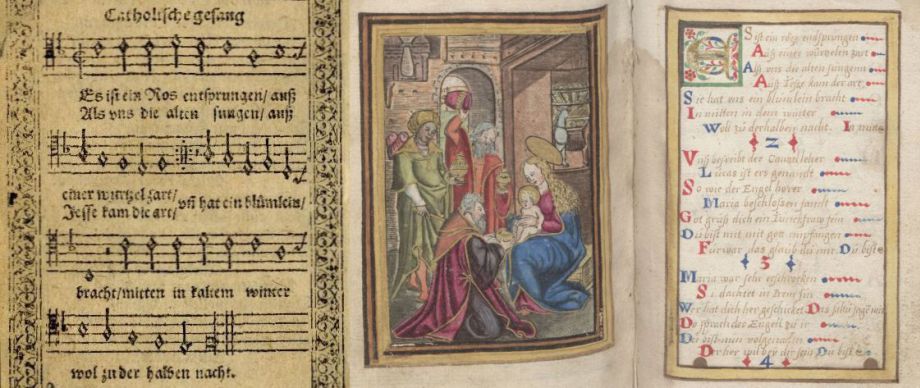 Catholische gesang
Es ist ein Ros entsprungen/ auß
Als vns die alten sungen/ auß
einer wurtzel zart/
Jesse kam die art/
vñ hat ein blümlein/
bracht/mitten in kaltem winter
wol zu der halben nacht.
S ist ein roß entsprungen
Auß einer wurtzelen zart
Alß vns die alten sungenn
Auß Jesse kam der art
Sie hat ens ein blümlein bracht
In mitten in dem winter
Woll zu derhalben nacht. In
2
Vnß besribt der
Lucas ist ers genandt
So wie der Engel
Maria beschlossen fandt
Got grüß dich ein
Du bist mit mit got empfangen
Fürwar das glaub du mir Du biste
3
Maria war sehr erschrocken
Si dachtet in Irem sin
Wer hat dich her geschicket
Do sprach der Engell zu ir
Du bist nun
Der her will bey dir sein Du biste
4